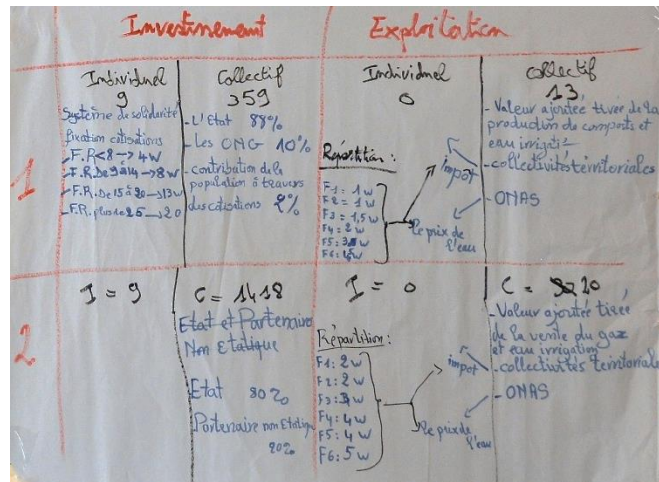 Investissement
Exploitation
Individuel
9
Collectif
359
Individuel
0
collectif
13
1
Système de solidarité
fixation cotisations
- F.R < 8 → 4w
- F.R. De 9 à 14 → 8w
- F.R. De 15 à 20 → 13w
- F.R. plus de 25 → 20
- L'Etat 88%
- Les ONG 10%
- contribution de la
population à travers
des cotisations 2%
Répartition :
F1 = 1w
F2 = 1w
F3 = 1,5w
F4 = 2w
impot
le prix de
l'eau
- Valeur ajoutée tirée de la
production de composts et
eau irrigat°
- collectivités territoriales
- ONAS
2
I = 9
C = 1418
Etat et Partenaire
Non Etatique
Etat 80%
Partenaire non Etatique
20%
I = 0
Répartition :
F1 : 2w
F2 : 2w
F3 : 3w
F4 : 4w
F5 : 4w
F6 : 5w
impot
le prix de
l'eau
C = 20
- Valeur ajoutée tirée
de la vente du gaz
et eau irrigation
- collectivités territoriales
- ONAS